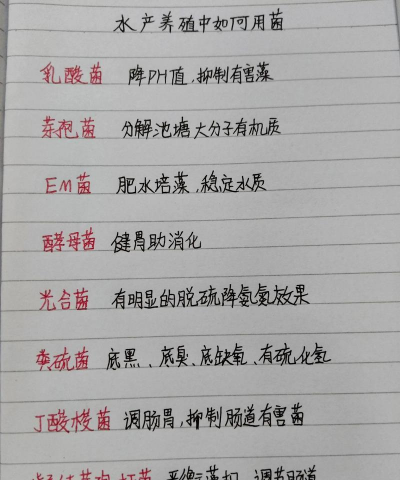 水产养殖中如何用菌
乳酸菌 降PH值,抑制有害藻
芽孢菌 分解池塘大分子有机质
EM菌 肥水培藻,稳定水质
酵母菌 健胃助消化
光合菌 有明显的脱硫降氨氮效果
硫菌 底黑、底臭、底缺氧、有硫化氢
丁酸梭菌 调肠胃,抑制肠道有害菌
平衡藻相 调节肠道